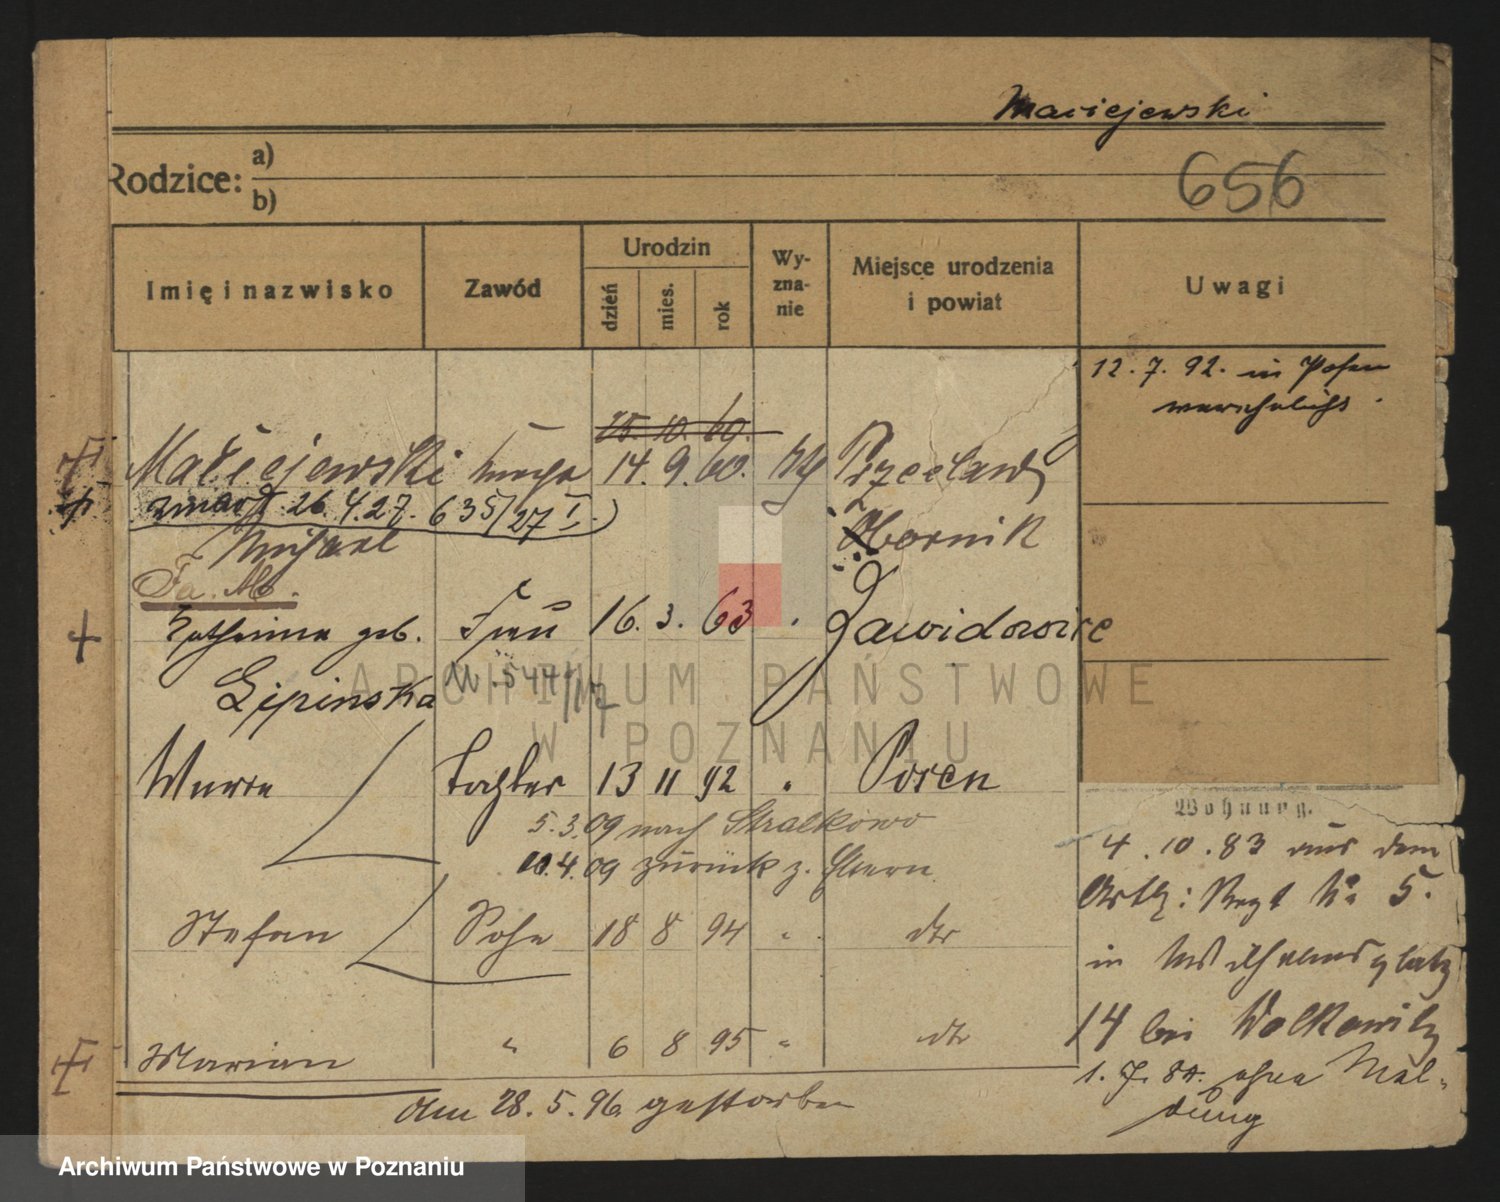 Maciejewski
656
Rodzice: a)
b)
Imię i nazwisko
Zawód
Urodzin
dzień
mies.
rok
Wy-
zna-
nie
Miejsce urodzenia
i powiat
Uwagi
12. 7. 92. in Posen
verehelicht.
15. 10. 60.
Maciejewski 14. 9. 60. Przeclaw
zmarł 26.4.27. 635/27 I.
Michael Obornik
Fa. M.
Katharina geb. Frau 16. 3. 63 " Dawidowice
Lipinska
Tochter 13 11 92 " Posen
5.3.09 nach Stralkowo
10.4.09 zurück z. Eltern.
Stefan Sohn 18 8 94 " dto
Marian " 6 8 95 " dto
Am 28. 5. 96. gestorben
Wohnung.
4. 10. 83 aus dem
Regt No 5.
in Wilhelmsplatz
14 bei Wolkowitz
1. 7. 84. ohne Mel-
dung
ARCHIWUM PAŃSTWOWE
W POZNANIU
Archiwum Państwowe w Poznaniu